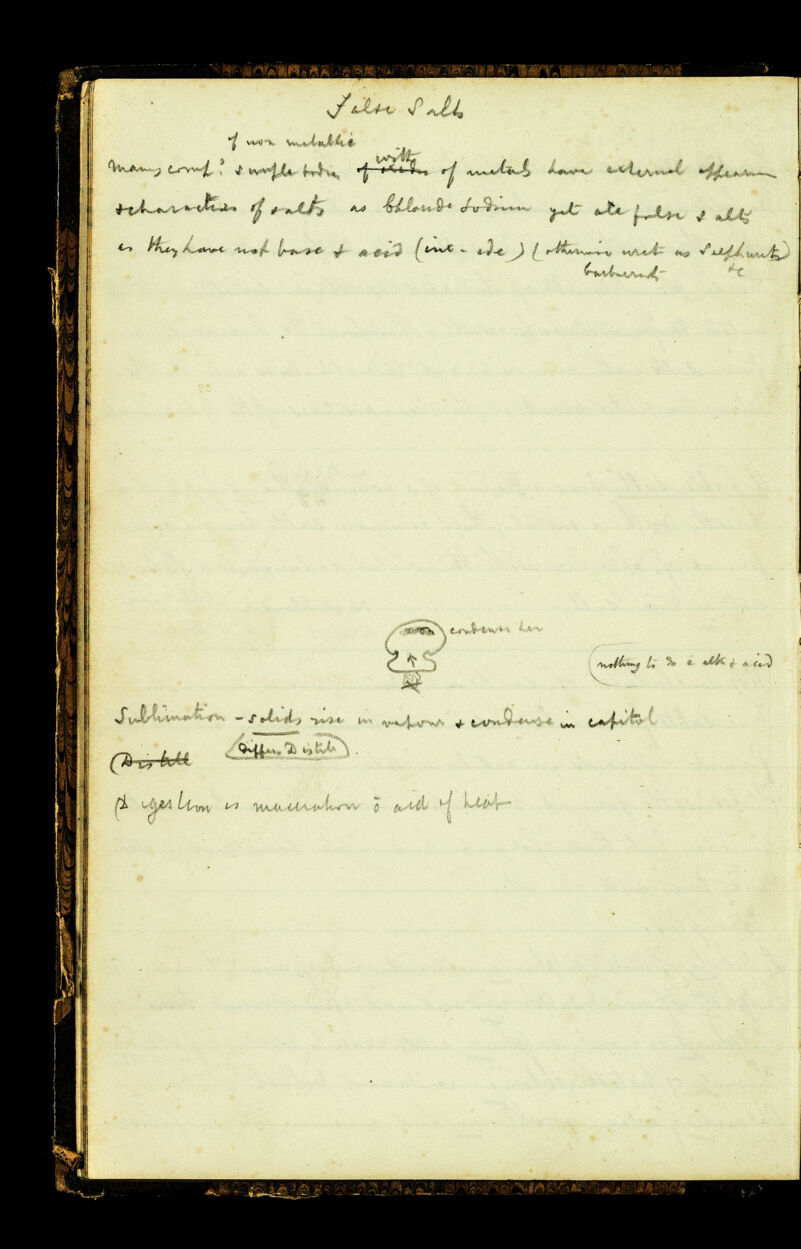 False Salts
of non metallic
Many comp.d simple bodies with of metals have external appearan
& characters of salts as Chloride Sodium yet are false salts
as they have not base & acid (ine - ide) (otherwise with as Sulphurets)
&c
condenses here
nothing to do c alk & acid
Sublimation - solids rise in vapour & condense in capitol
(Distill
(differs Distill)
(Digestion is maceration c aid of heat